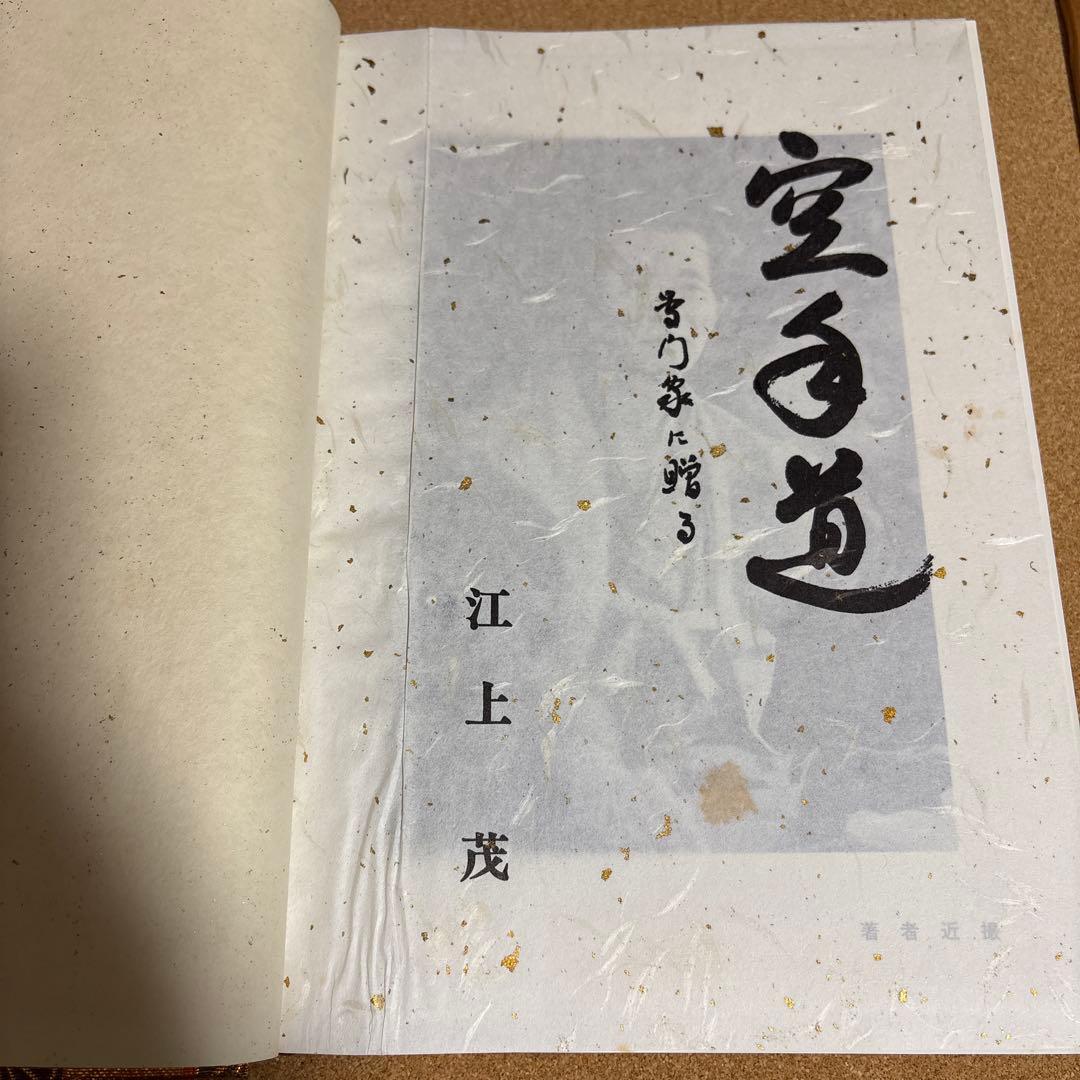 空手道
専門家に贈る
江上茂
著者近撮